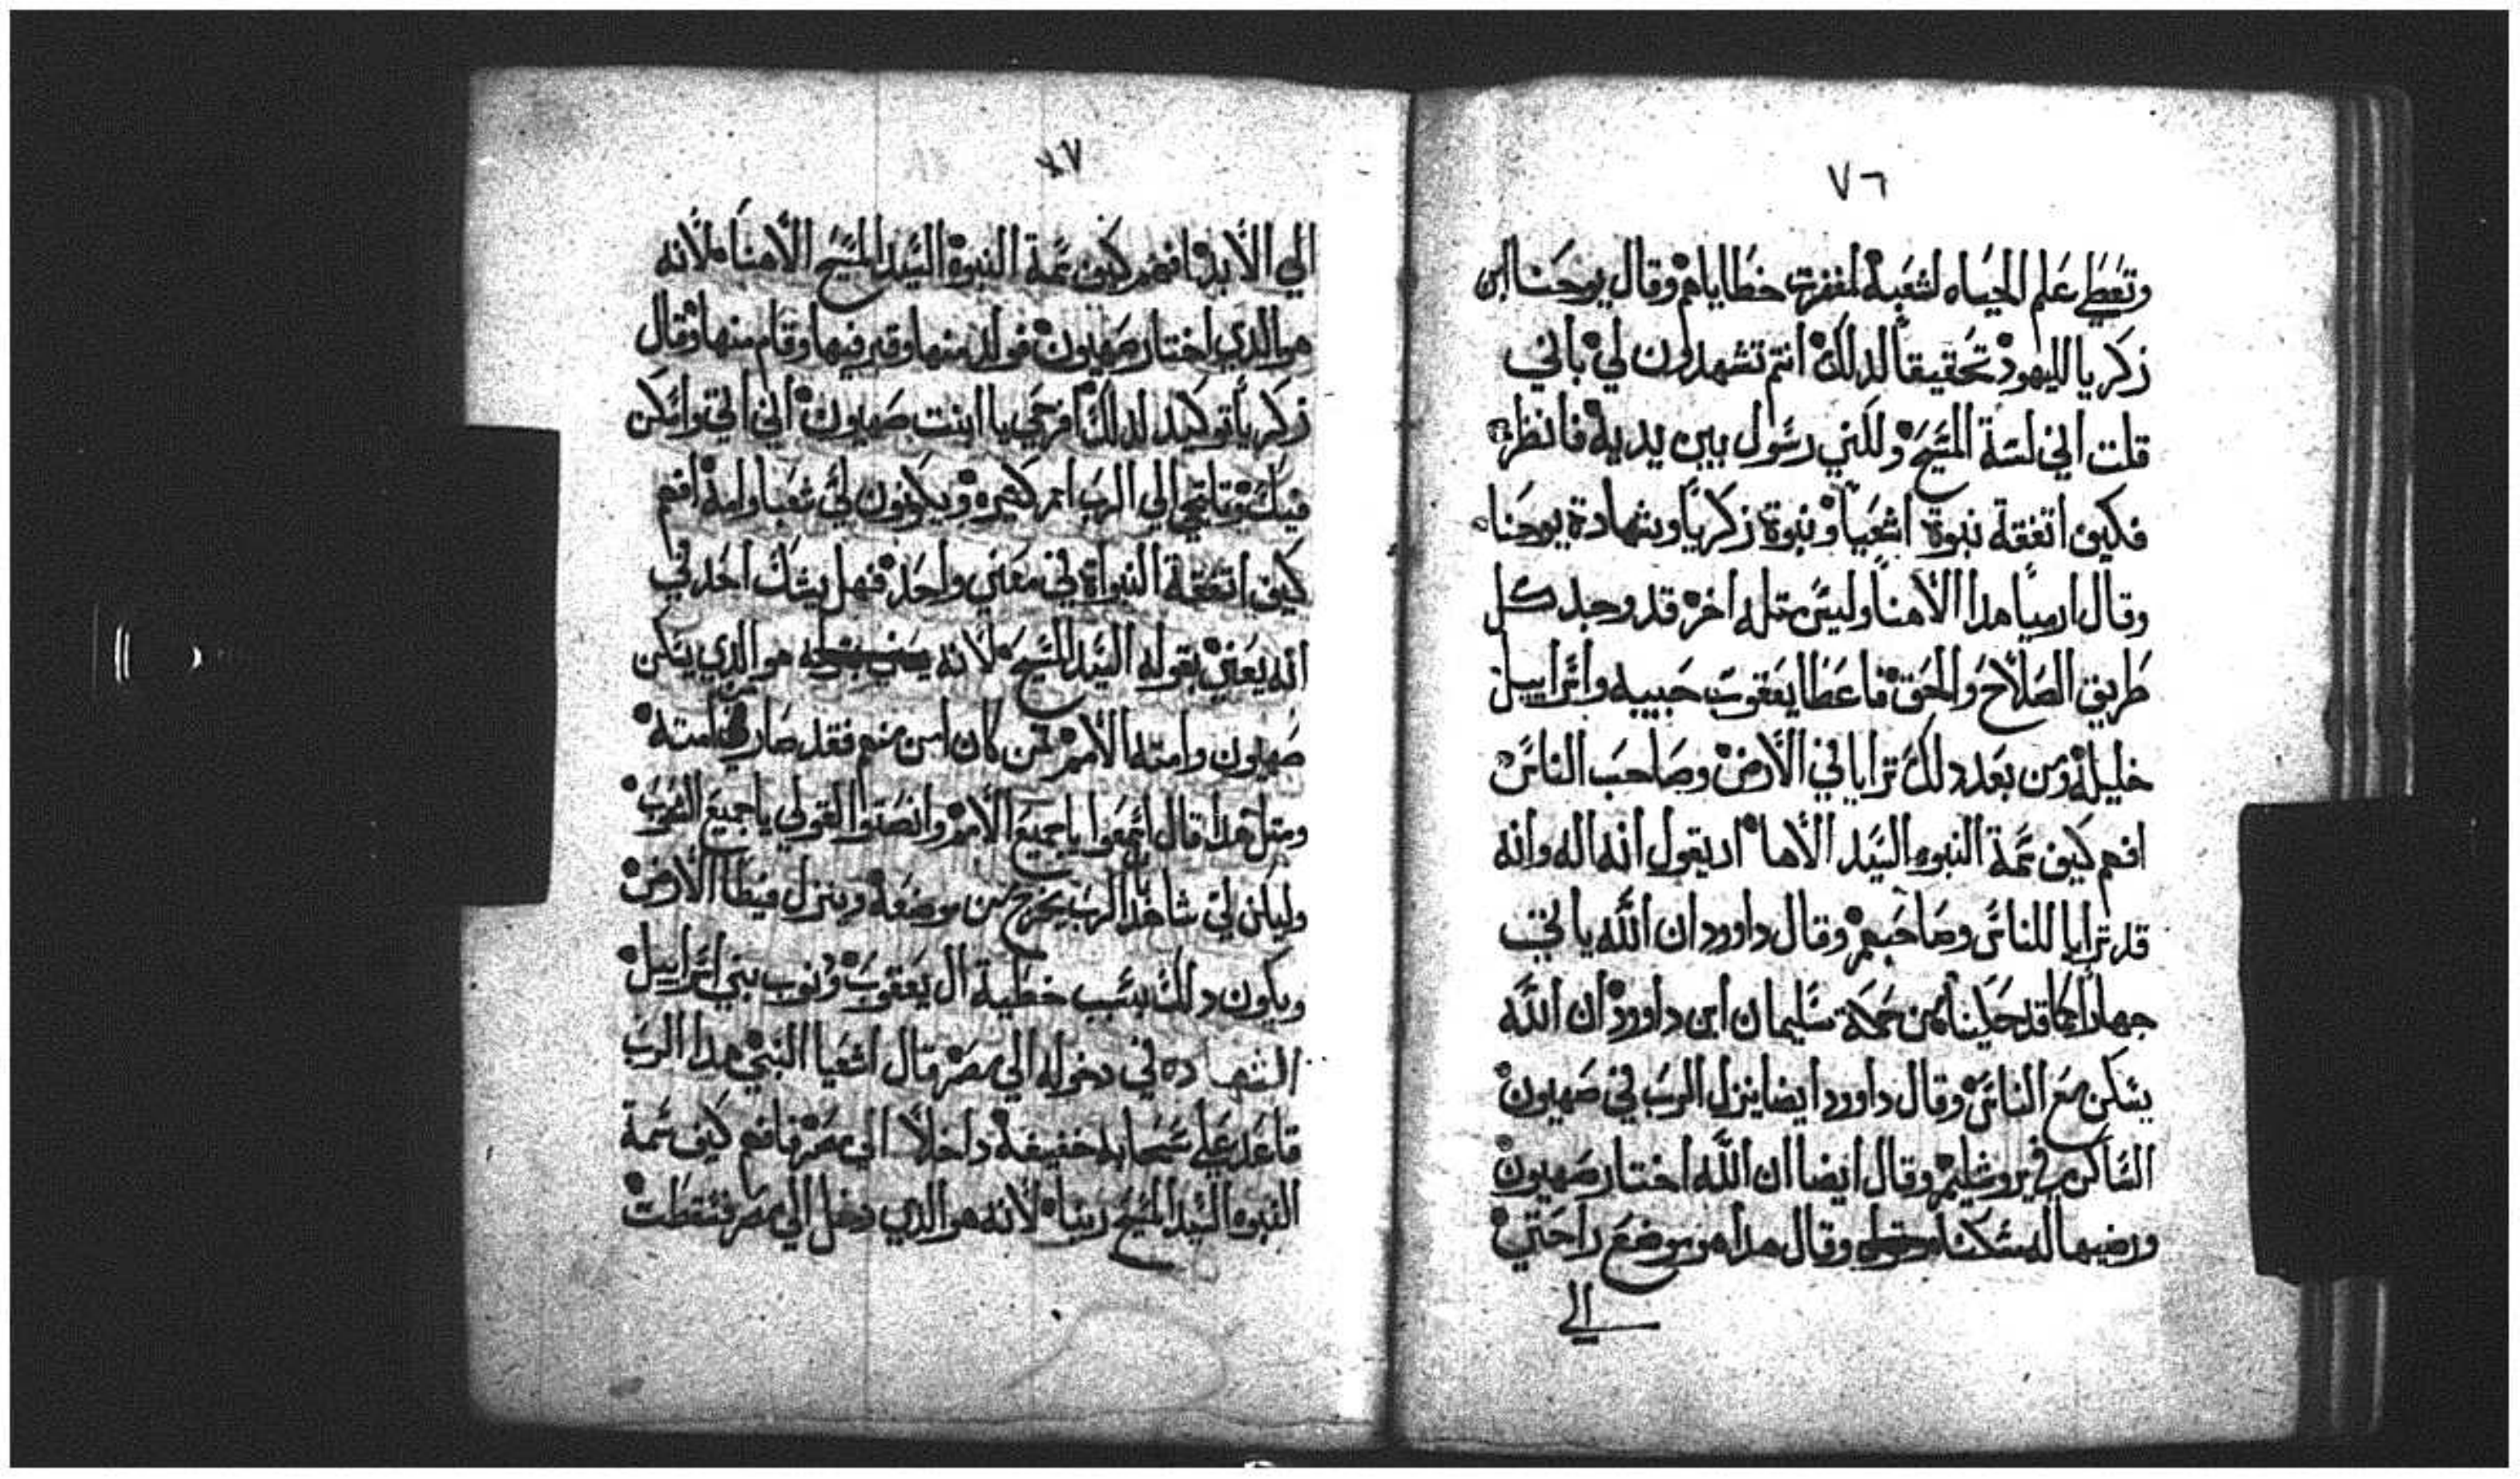 ٧٦
وتعطي علم الحياه لشعبه لمغفرت خطاياهم وقال يوحنا ابن
زكريا لليهود تحقيقا لدلك انتم تشهدون لي باني
قلت اني لسة المسيح ولكني رسول بين يديه فانظر
فكيف اتفقة نبوة اشعيا ونبوة زكريا وشهادة يوحنا
وقال ارميا هدا الاهنا وليس متله اخر قد وجد كل
طريق الصلاح والحق فاعطا يعقوب حبيبه واسراييل
خليله ومن بعد دلك ترايا في الارض وصاحب الناس
افهم كيف تمة النبوه السيد الاها اد يقول انه اله وانه
قد ترايا للناس وصاحبهم وقال داوود ان الله ياتي
جهارا كما قد حكينا من حكمة سليمان ابن داوود ان الله
يسكن مع الناس وقال داوود ايضا ينزل الرب في صهيون
الساكن في يروشليم وقال ايضا ان الله اختار صهيون
ورضيها له مسكنا وقال هدا هو موضع راحتي
الي
٧٧
الي الابد افهم كيف تمة النبوة السيد المسيح الاهنا لانه
هو الدي اختار صهيون فولد منها وقبر فيها وقام منها وقال
زكريا توكيد لدلك افرحي يا ابنت صهيون اني اتي واسكن
فيك وتاتجي الي الرب امم كتيره ويكونون لي شعبا وامة افهم
كيف اتفقة النبواة في معني واحد فهل يشك احد في
انه يعني بقوله السيد المسيح لانه هو الدي يسكن
صهيون وامنة به الامم فمن كان امن منهم فقد صار من امته
ومتل هدا قال اسمعوا يا جميع الامم وانصتوا لقولي يا جميع الشعوب
وليكن لي شاهدا الرب يخرج من موضعه وينزل فيطا الارض
ويكون دلك بسبب خطية ال يعقوب ودنوب بني اسراييل
الشهاده في دخوله الي مصر قال اشعيا النبي هدا الرب
قاعد علي سحابه خفيفة داخلا الي مصر فافهم كيف تمة
النبوه السيد المسيح ربنا لانه هو الدي دخل الي مصر فسقطت